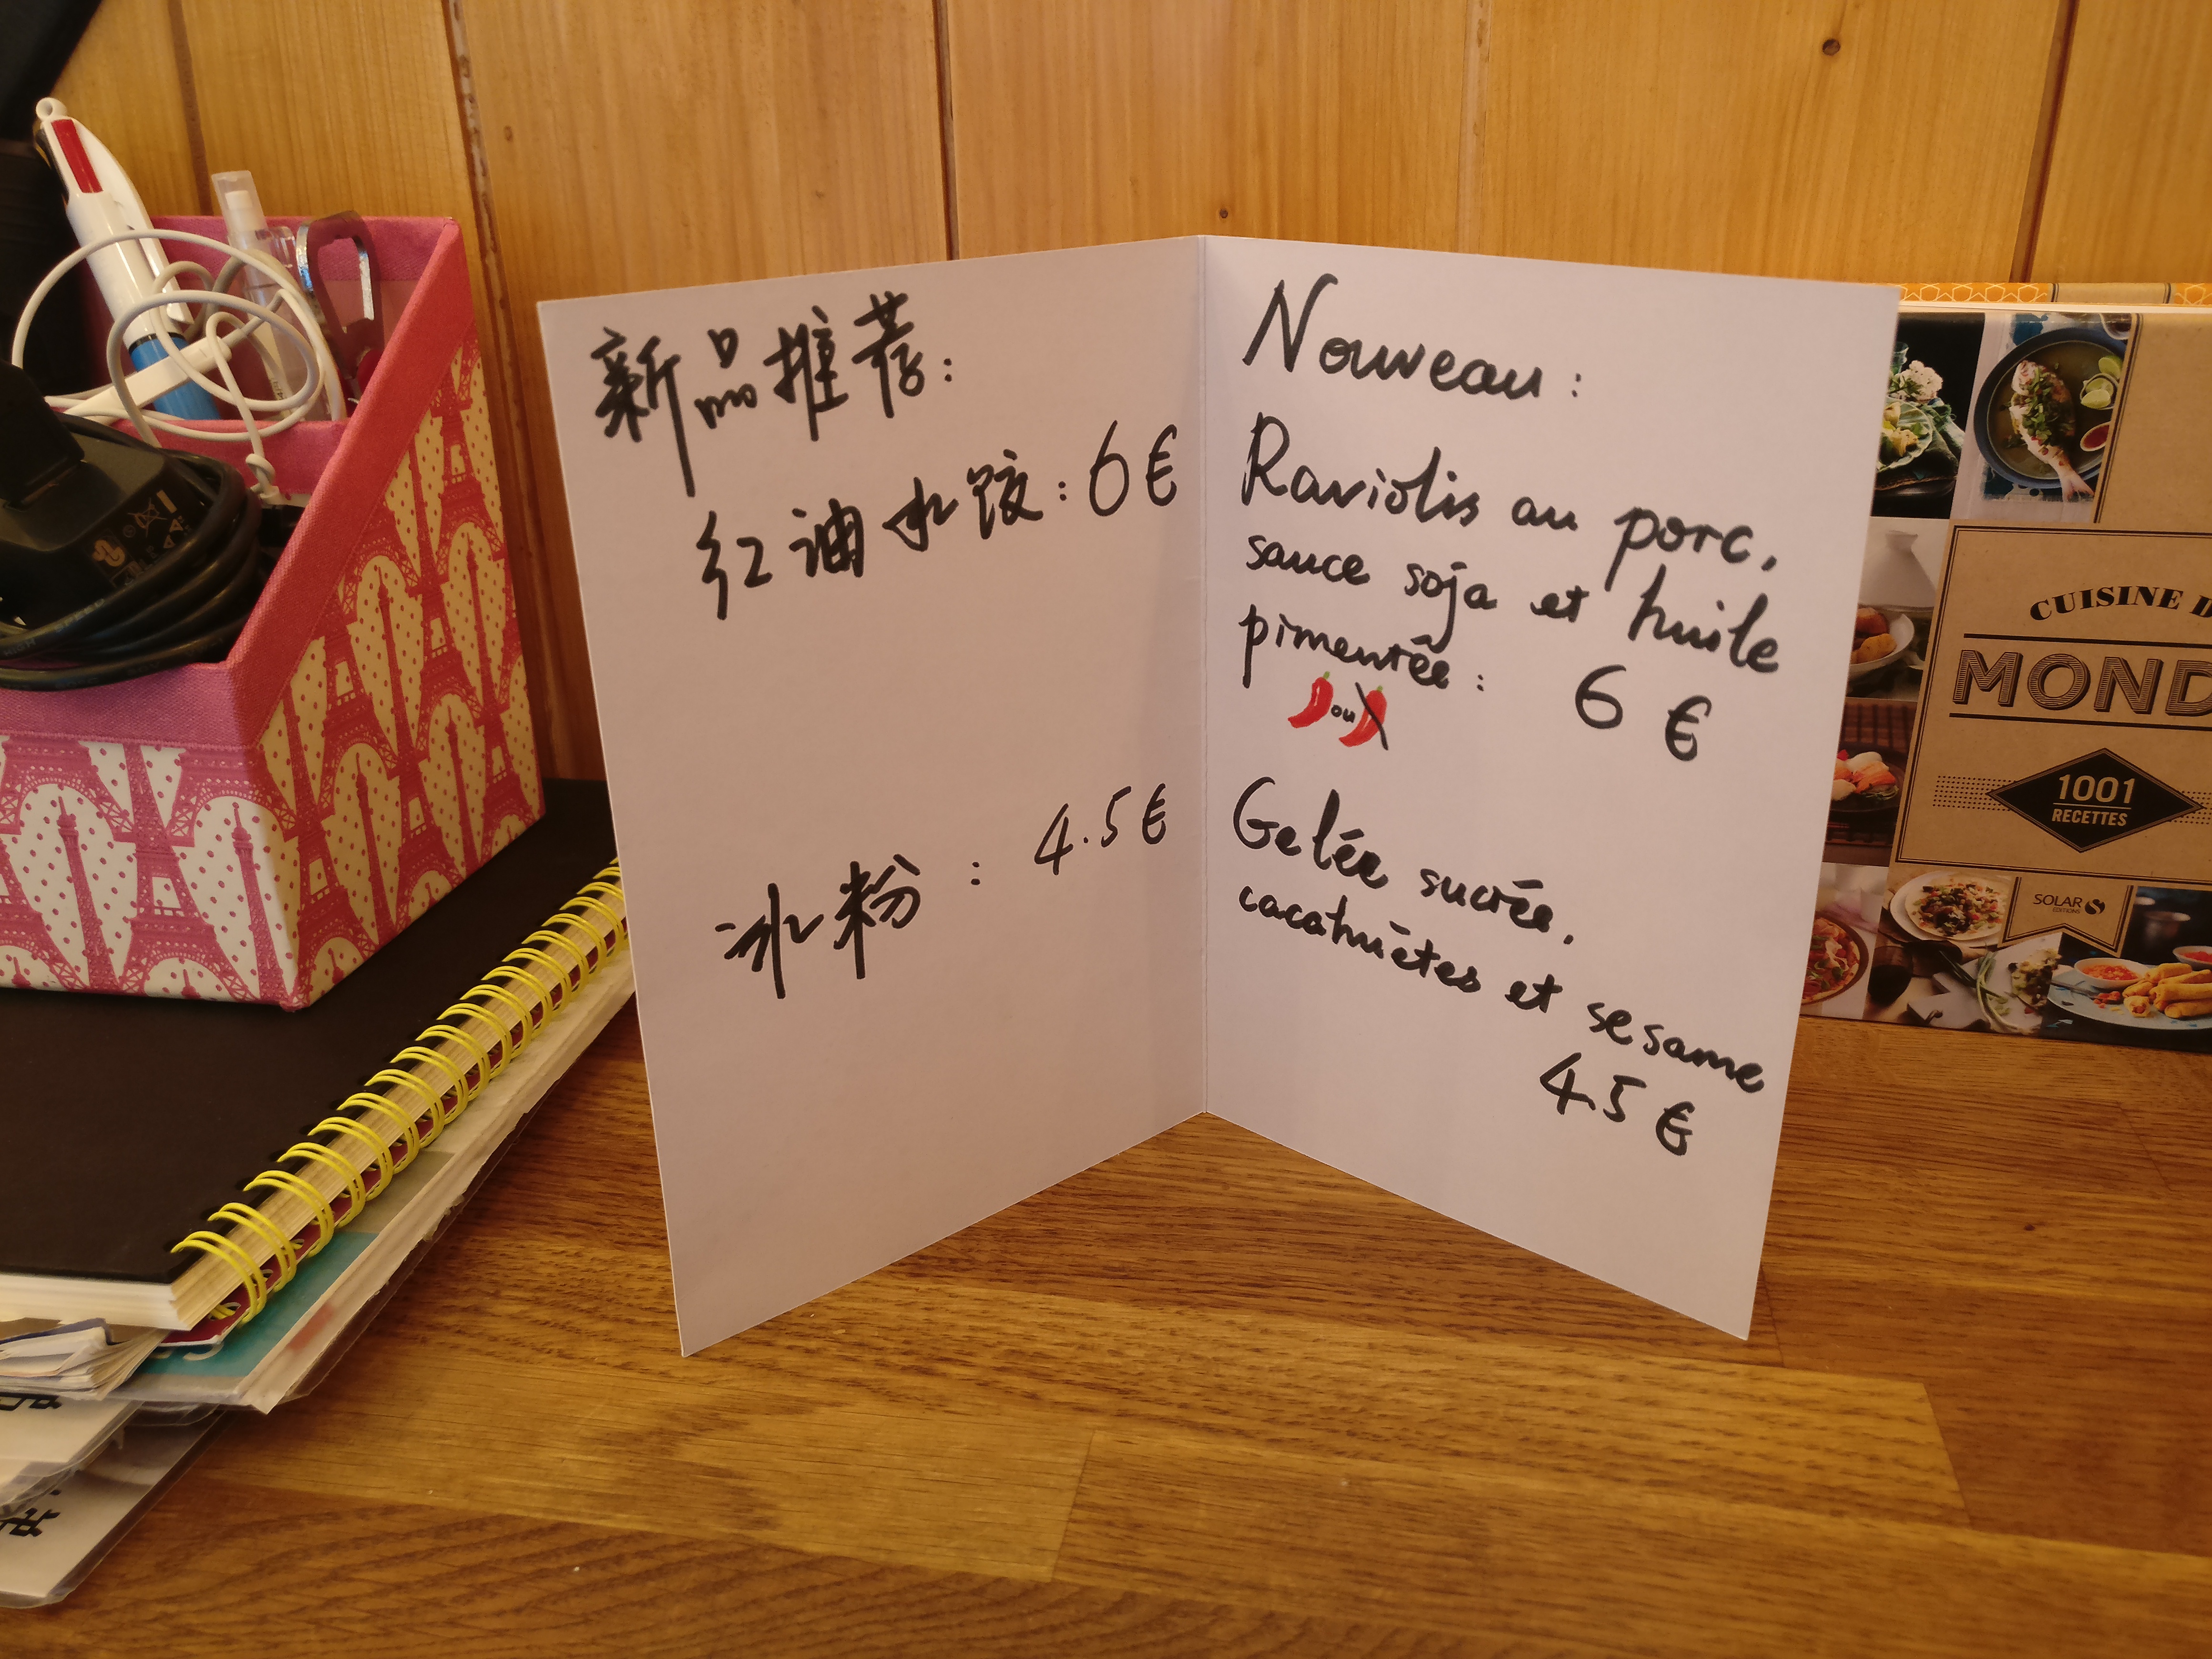 新品推荐:
红油水饺:6€
冰粉:4.5€
Nouveau:
Raviolis au porc,
sauce soja et huile
pimentée: 6 €
ou
Gelée sucrée,
cacahuètes et sesame
4.5 €
CUISINE
MOND
1001
RECETTES
SOLAR
EDITIONS